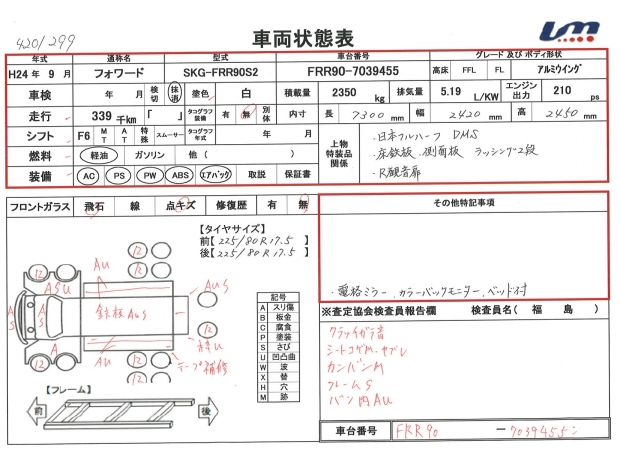 4201299
車両状態表
UM
年式 通称名 型式 車台番号 グレード 及び ボディ形状
H24 年 9 月 フォワード SKG-FRR90S2 FRR90-7039455 高床 FFL FL アルミウイング
車検 年 月 検切 抹消 塗色 白 積載量 2350 kg 排気量 5.19 L/KW エンジン出力 210 ps
走行 339 千km 「 」 タコグラフ装備 有 無 別体 内寸 長 7300 mm 幅 2420 mm 高 2450 mm
シフト F6 MT AT 特殊 スムーサー タコグラフ年式 年 月
燃料 軽油 ガソリン 他 ( )
装備 AC PS PW ABS エアバック 取説 保証書
上物特装品関係
・日本フルハーフ DMS
・床鉄板、側面板 ラッシング2段
・R観音扉
フロントガラス 飛石 線 点キズ 修復歴 有 無
その他特記事項
・電格ミラー、カラーバックモニター、ベッド付
【タイヤサイズ】
前【 225/80R17.5 】
後【 225/80R17.5 】
12 12 12 12 12 12
ASU
AU
AUS
AS
AS
鉄板AUS
AU
AU
テープ補修
記号
A スリ傷
B 板金
C 腐食
P 塗装
S さび
U 凹凸曲
W 波
X 替
H 穴
M 跡
【フレーム】
前 後
※査定協会検査員報告欄 検査員名( 福 島 )
クラッチガラ音
シートコゲM、ヤブレ
カンバンM
フレームS
バン内AU
車台番号 FRR90 -7039455